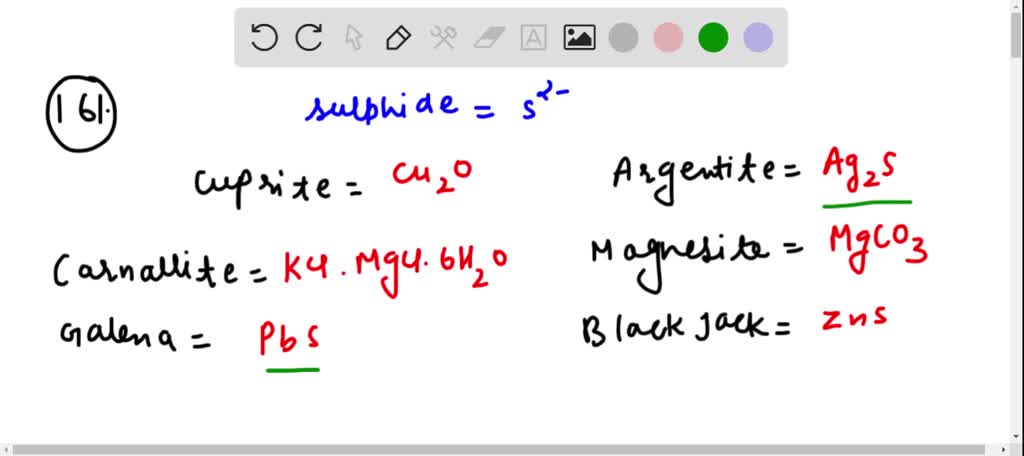 161.
sulphide = S²⁻
Cuprite = Cu₂O
Argentite = Ag₂S
Carnallite = KCl . MgCl . 6H₂O
Magnesite = MgCO₃
Galena = PbS
Black jack = ZnS